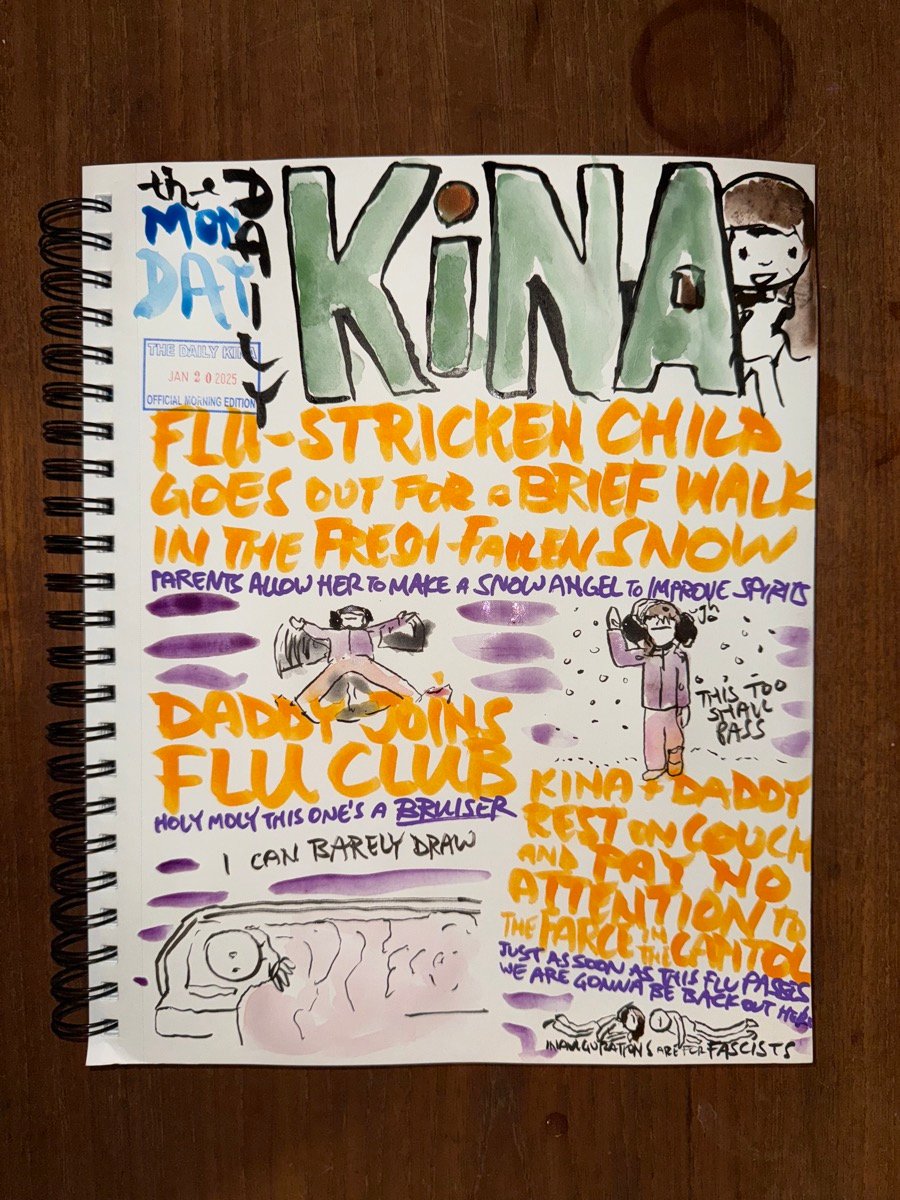 the
MON
DAY
DAILY
KiNA
THE DAILY KINA
JAN 20 2025
OFFICIAL MORNING EDITION
FLU-STRICKEN CHILD
GOES OUT FOR a BRIEF WALK
IN THE FRESH FALLEN SNOW
PARENTS ALLOW HER TO MAKE A SNOW ANGEL TO IMPROVE SPIRITS
ugh
THIS TOO
SHALL
PASS
DADDY JOINS
FLU CLUB
HOLY MOLY THIS ONE'S A BRUISER
I CAN BARELY DRAW
KINA + DADDY
REST ON COUCH
AND PAY NO
ATTENTION TO
THE FARCE IN THE CAPITOL
JUST AS SOON AS THIS FLU PASSES
WE ARE GONNA BE BACK OUT HERE
INAUGURATIONS ARE FOR FASCISTS